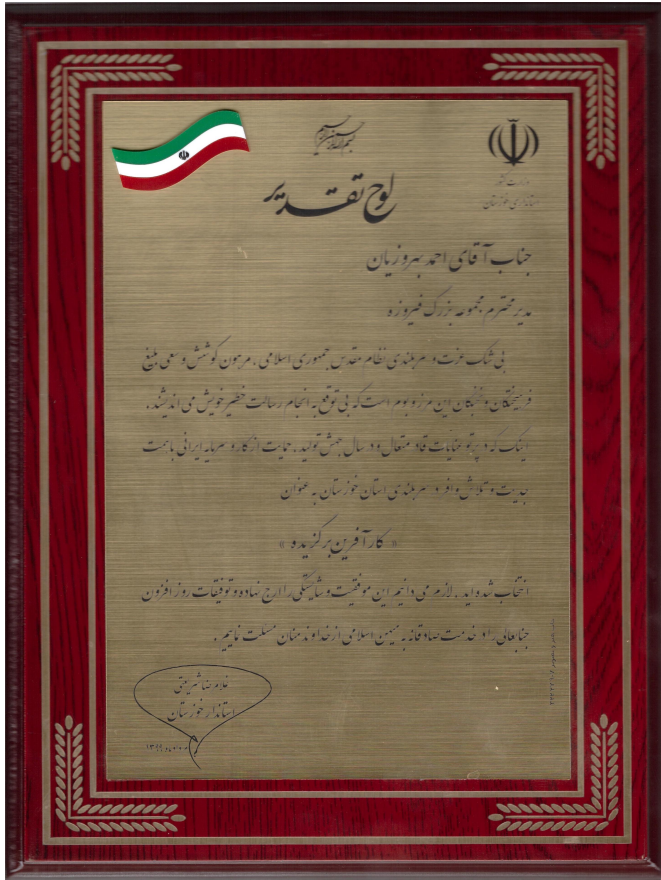 بسم الله الرحمن الرحیم
وزارت کشور
استانداری خوزستان
لوح تقدیر
جناب آقای احمد بهروزیان
مدیر محترم مجموعه بزرگ فیروزه
بی شک عزت و سربلندی نظام مقدس جمهوری اسلامی، مرهون کوشش و سعی بلیغ
فرهیختگان و نخبگان این مرز و بوم است که بی توقع به انجام رسالت خطیر خویش می اندیشند.
اینک که در پرتو عنایات قادر متعال و در سال جهش تولید، حمایت از کار و سرمایه ایرانی با همت
جدیت و تلاش وافر در سربلندی استان خوزستان به عنوان
« کارآفرین برگزیده »
انتخاب شده اید. لازم می دانیم این موفقیت و شایستگی را ارج نهاده و توفیقات روزافزون
جنابعالی را در خدمت صادقانه به میهن اسلامی از خداوند منان مسئلت نمایم.
غلامرضا شریعتی
استاندار خوزستان